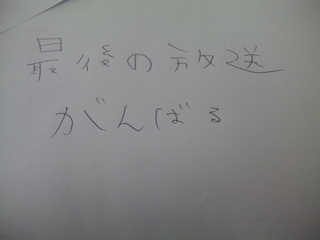 最後の放送
がんばる